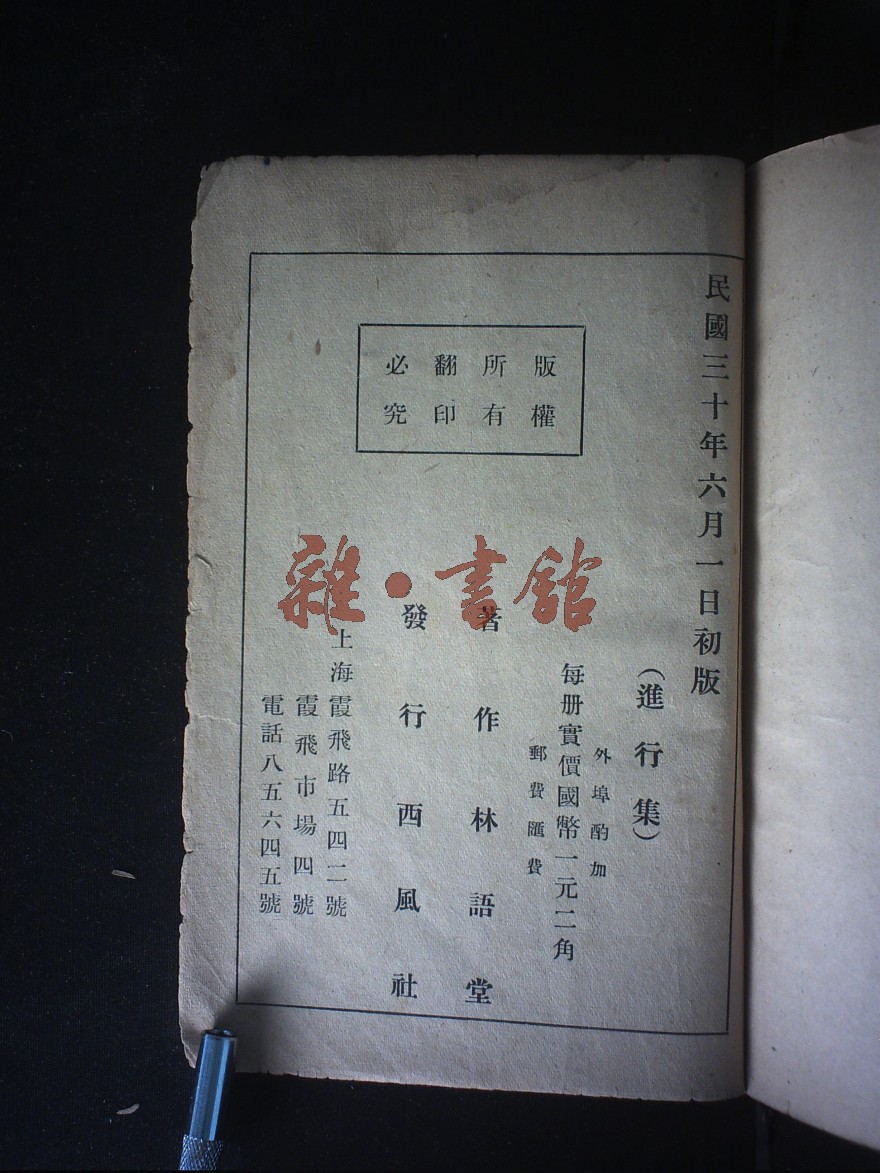 民國三十年六月一日初版
版權
所有
翻印
必究
(進行集)
外埠酌加
每册實價國幣一元二角
郵費匯費
著作林語堂
發行西風社
上海霞飛路五四二號
霞飛市場四號
電話八五六四五號
雜·書館